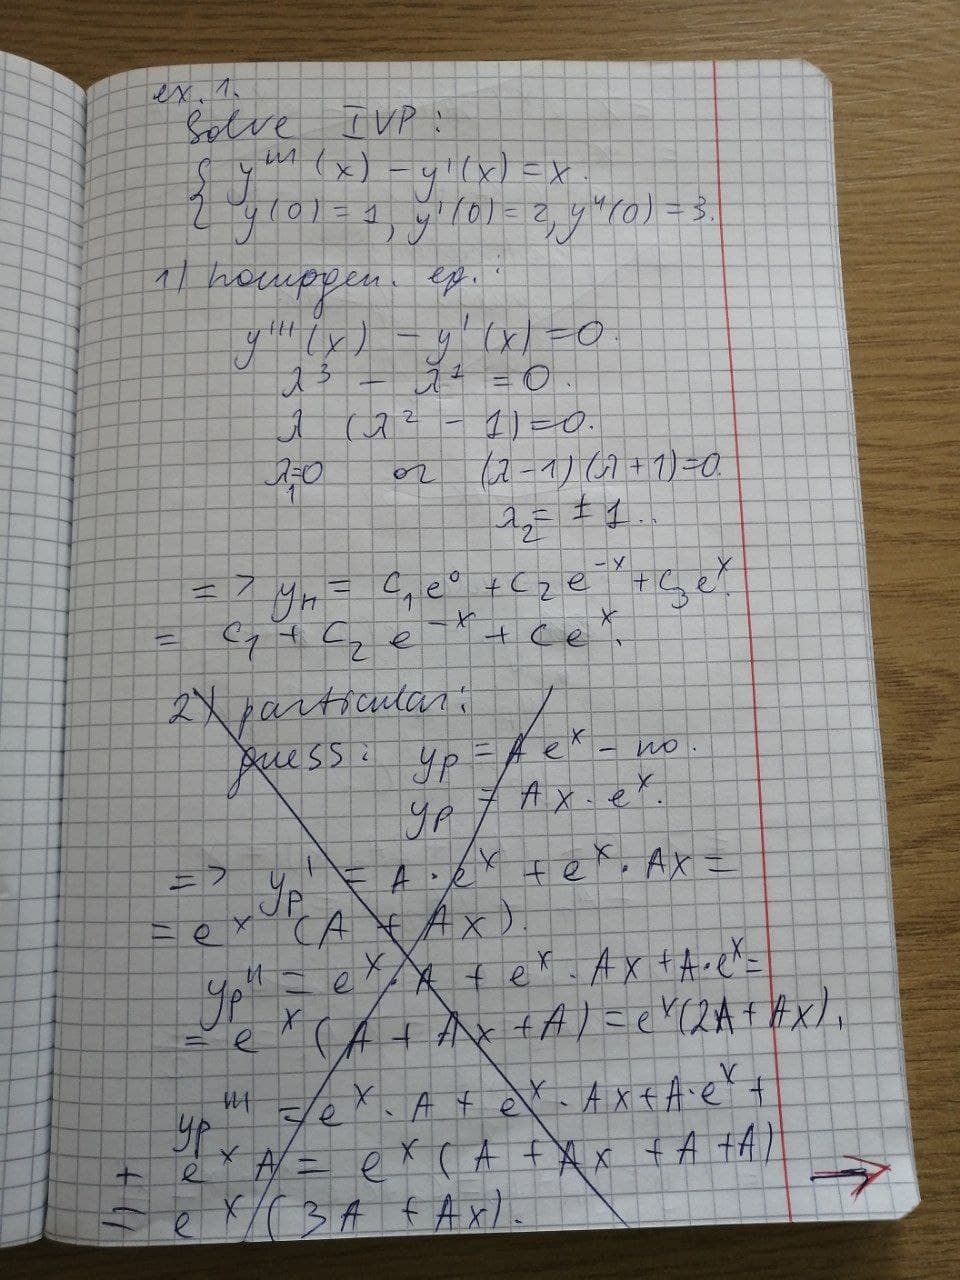 ex. 1.
Solve IVP:
{ y'''(x) - y'(x) = x.
y(0) = 1, y'(0) = 2, y''(0) = 3.
1) homogen. eq.:
y'''(x) - y'(x) = 0.
λ³ - λ¹ = 0.
λ (λ² - 1) = 0.
λ₁=0 or (λ-1)(λ+1)=0.
λ₂ = ±1..
=> yₕ = C₁e⁰ + C₂e⁻ˣ + C₃eˣ.
= C₁ + C₂ e⁻ˣ + C eˣ.
2) particular:
guess: yp = A eˣ - no.
yp = Ax · eˣ.
=> yp' = A · eˣ + eˣ · Ax =
= eˣ (A + Ax).
yp'' = eˣ · A + eˣ · Ax + A·eˣ =
= eˣ (A + Ax + A) = eˣ(2A + Ax).
yp''' = eˣ · A + eˣ · Ax + A·eˣ +
+ eˣ A = eˣ (A + Ax + A + A)
= eˣ (3A + Ax).